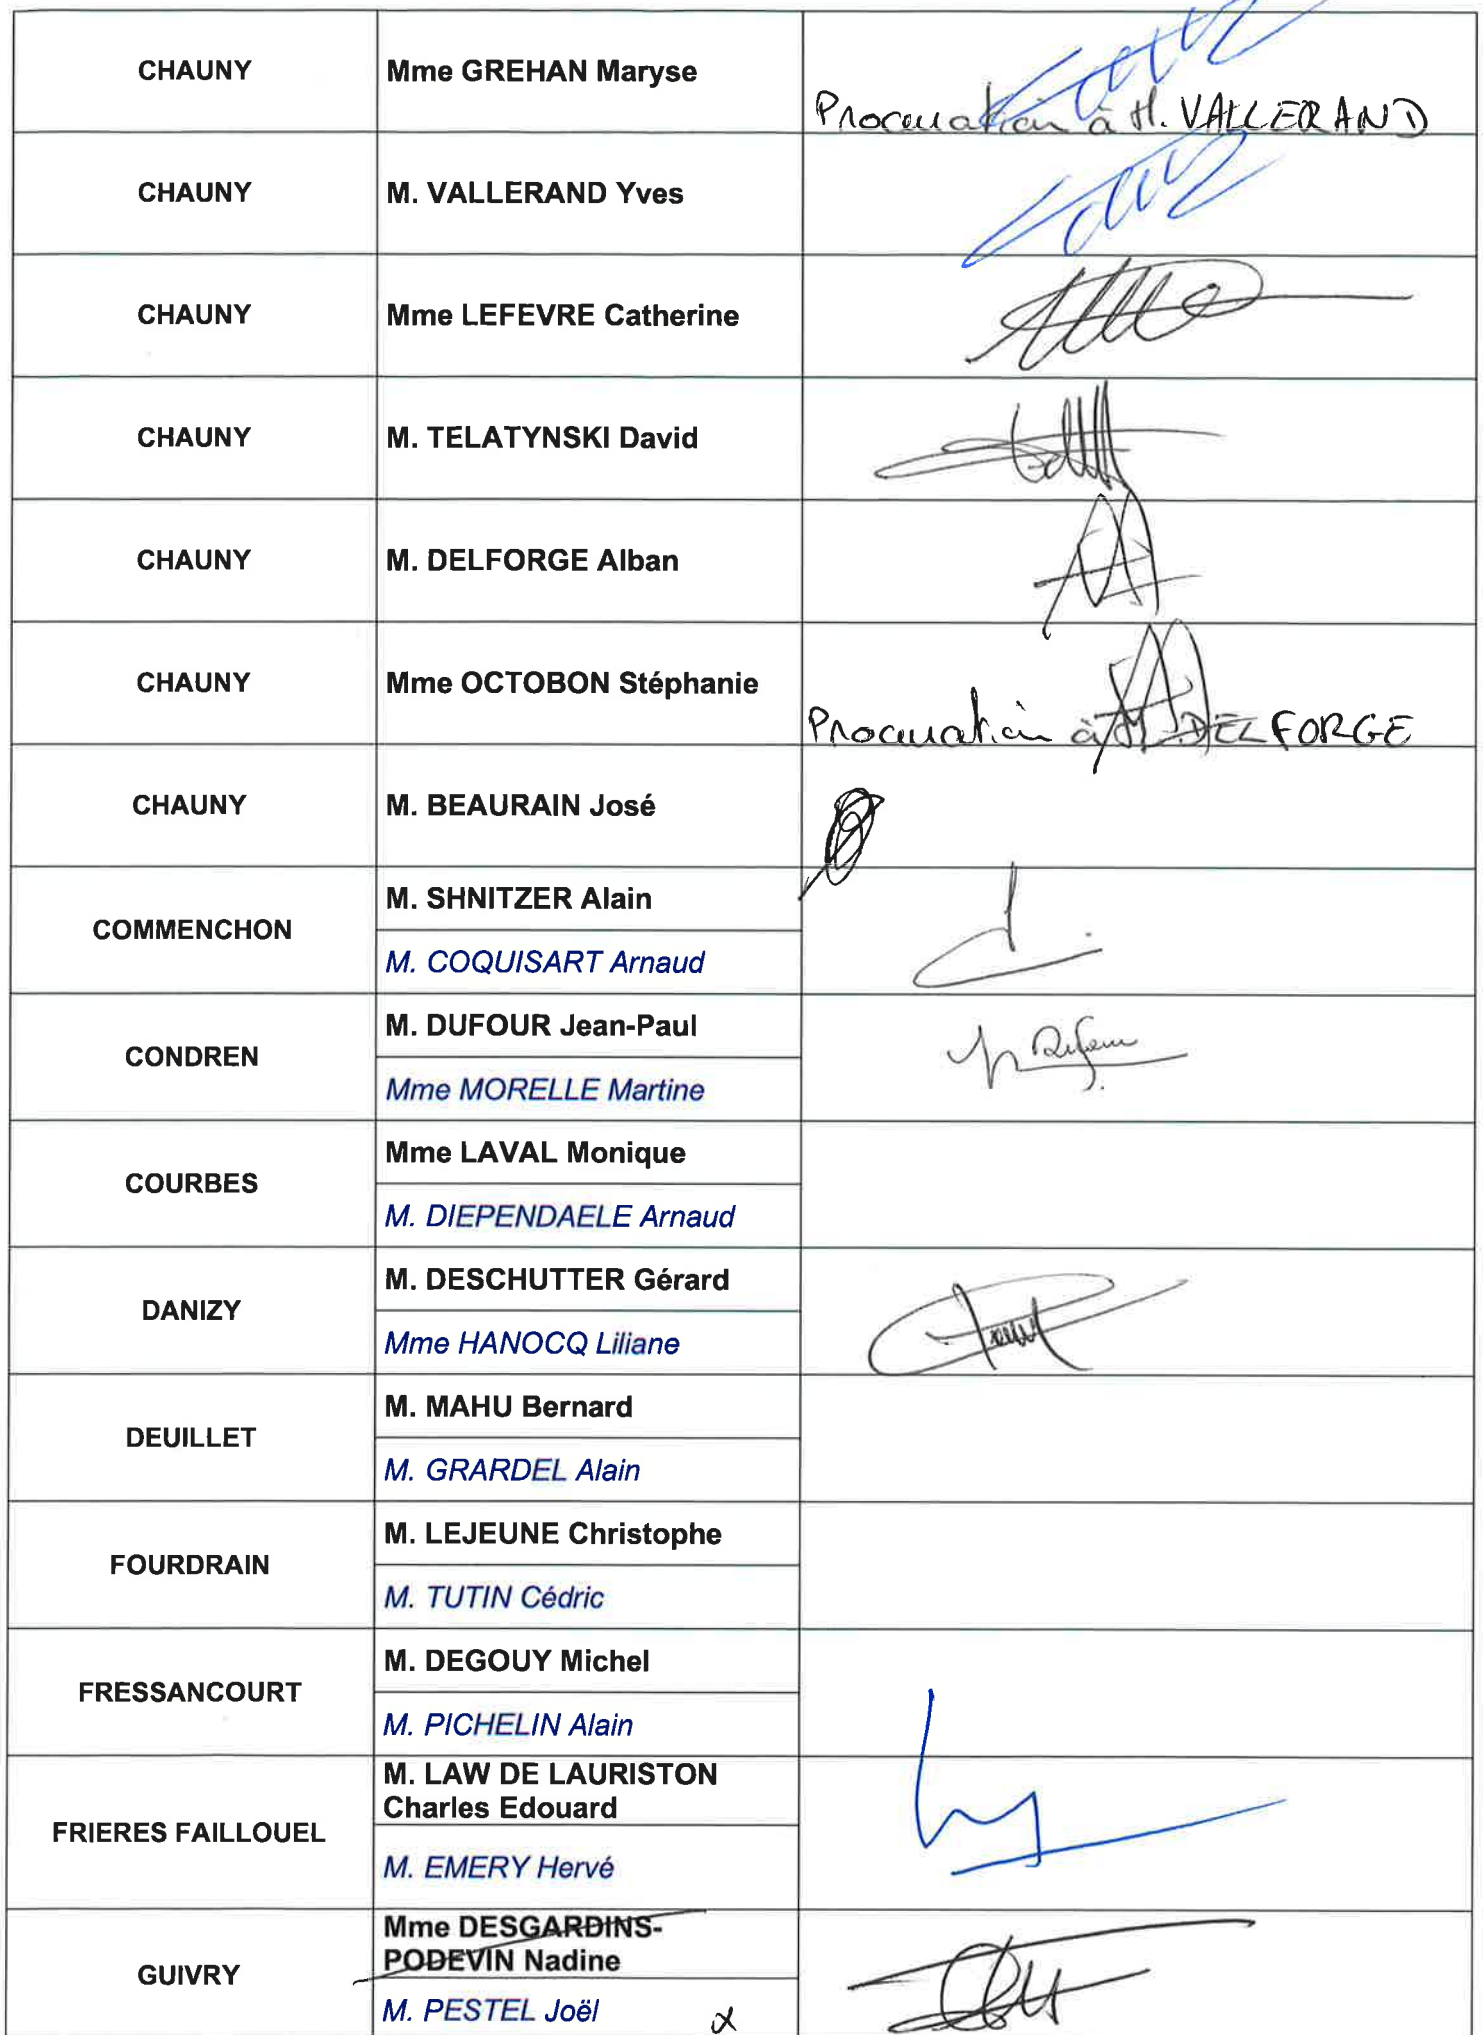 CHAUNY
Mme GREHAN Maryse
Procuration à M. VALLERAND
CHAUNY
M. VALLERAND Yves
CHAUNY
Mme LEFEVRE Catherine
CHAUNY
M. TELATYNSKI David
CHAUNY
M. DELFORGE Alban
CHAUNY
Mme OCTOBON Stéphanie
Procuration à M. DELFORGE
CHAUNY
M. BEAURAIN José
COMMENCHON
M. SHNITZER Alain
M. COQUISART Arnaud
CONDREN
M. DUFOUR Jean-Paul
Mme MORELLE Martine
COURBES
Mme LAVAL Monique
M. DIEPENDAELE Arnaud
DANIZY
M. DESCHUTTER Gérard
Mme HANOCQ Liliane
DEUILLET
M. MAHU Bernard
M. GRARDEL Alain
FOURDRAIN
M. LEJEUNE Christophe
M. TUTIN Cédric
FRESSANCOURT
M. DEGOUY Michel
M. PICHELIN Alain
FRIERES FAILLOUEL
M. LAW DE LAURISTON
Charles Edouard
M. EMERY Hervé
GUIVRY
Mme DESGARDINS-
PODEVIN Nadine
M. PESTEL Joël